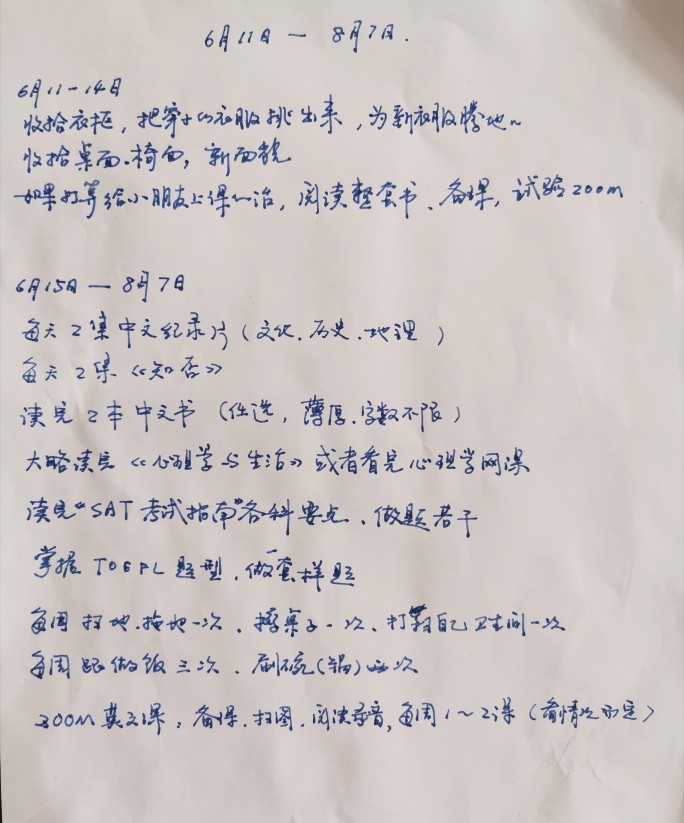 6月11日 — 8月7日.
6月11-14日
收拾衣柜，把穿小的衣服挑出来，为新衣服腾地~
收拾桌面、椅面，新面貌
如果打算给小朋友上课的话，阅读整套书、备课，试验zoom
6月15日 — 8月7日
每天2集中文纪录片（文化、历史、地理）
每天2集《知否》
读完2本中文书（任选，薄厚、字数不限）
大略读完《心理学与生活》或者看完心理学网课
读完“SAT考试指南”各科要点、做题若干
掌握TOEFL题型、做一套样题
每周扫地、拖地一次、擦桌子一次、打扫自己卫生间一次
每周跟做饭三次、刷碗（锅）次
zoom英文课：备课、扫图、阅读录音，每周1～2课（看情况而定）